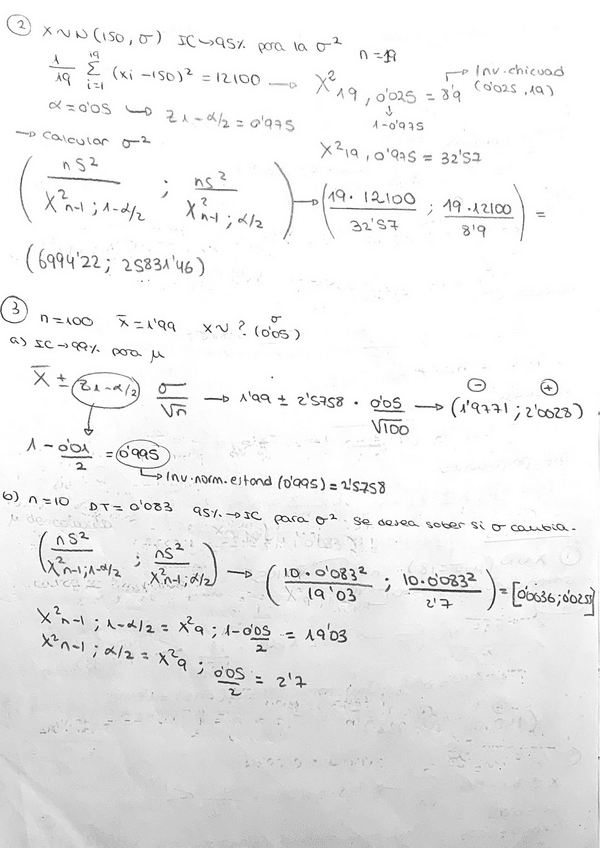 ② X ~ N (150, σ) IC → 95% para la σ² n = 19
1/19 19 Σ i=1 (xi - 150)² = 12100 → X² 19, 0'025 = 8'9 → Inv. chicuad (0'025, 19)
↓ 1-0'975
α = 0'05 → Z 1-α/2 = 0'975
X² 19, 0'975 = 32'57
→ Calcular σ²
( nS² / X² n-1; 1-α/2 ; nS² / X² n-1; α/2 ) → ( 19 · 12100 / 32'57 ; 19 · 12100 / 8'9 ) =
(6994'22 ; 25831'46)
③ n = 100 x̄ = 1'99 X ~ ? (0'05) σ
a) IC → 99% para μ
X̄ ± Z 1-α/2 σ/√n → 1'99 ± 2'5758 · 0'05/√100 → (1'9771 ; 2'0028) ⊖ ⊕
1 - 0'01/2 = 0'995
↳ Inv. norm. estand (0'995) = 2'5758
b) n = 10 DT = 0'083 95% → IC para σ² se desea saber si σ cambia.
( nS² / X² n-1; 1-α/2 ; nS² / X² n-1; α/2 ) → ( 10 · 0'083² / 19'03 ; 10 · 0'083² / 2'7 ) = [0'0036 ; 0'0255]
X² n-1 ; 1-α/2 = X² 9 ; 1-0'05/2 = 19'03
X² n-1 ; α/2 = X² 9 ; 0'05/2 = 2'7